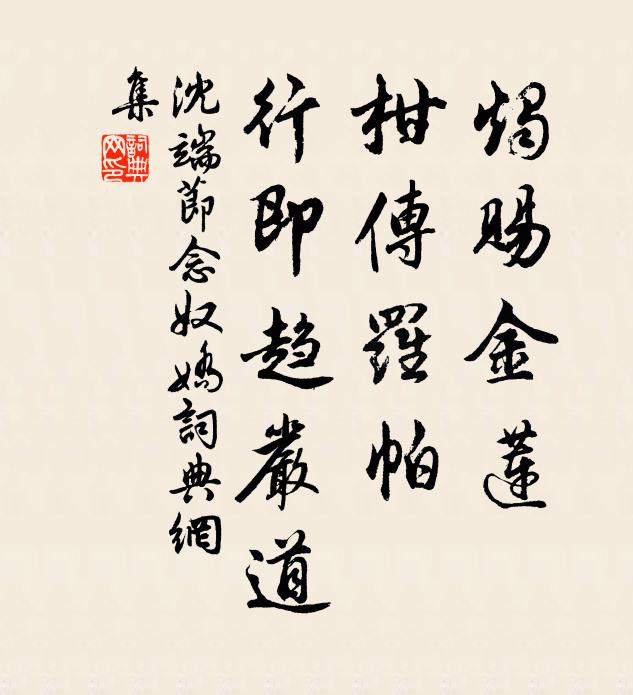 燭賜金蓮
柑傳羅帕
行即趨嚴道
沈端節念奴嬌詞典網
集
詞典網印